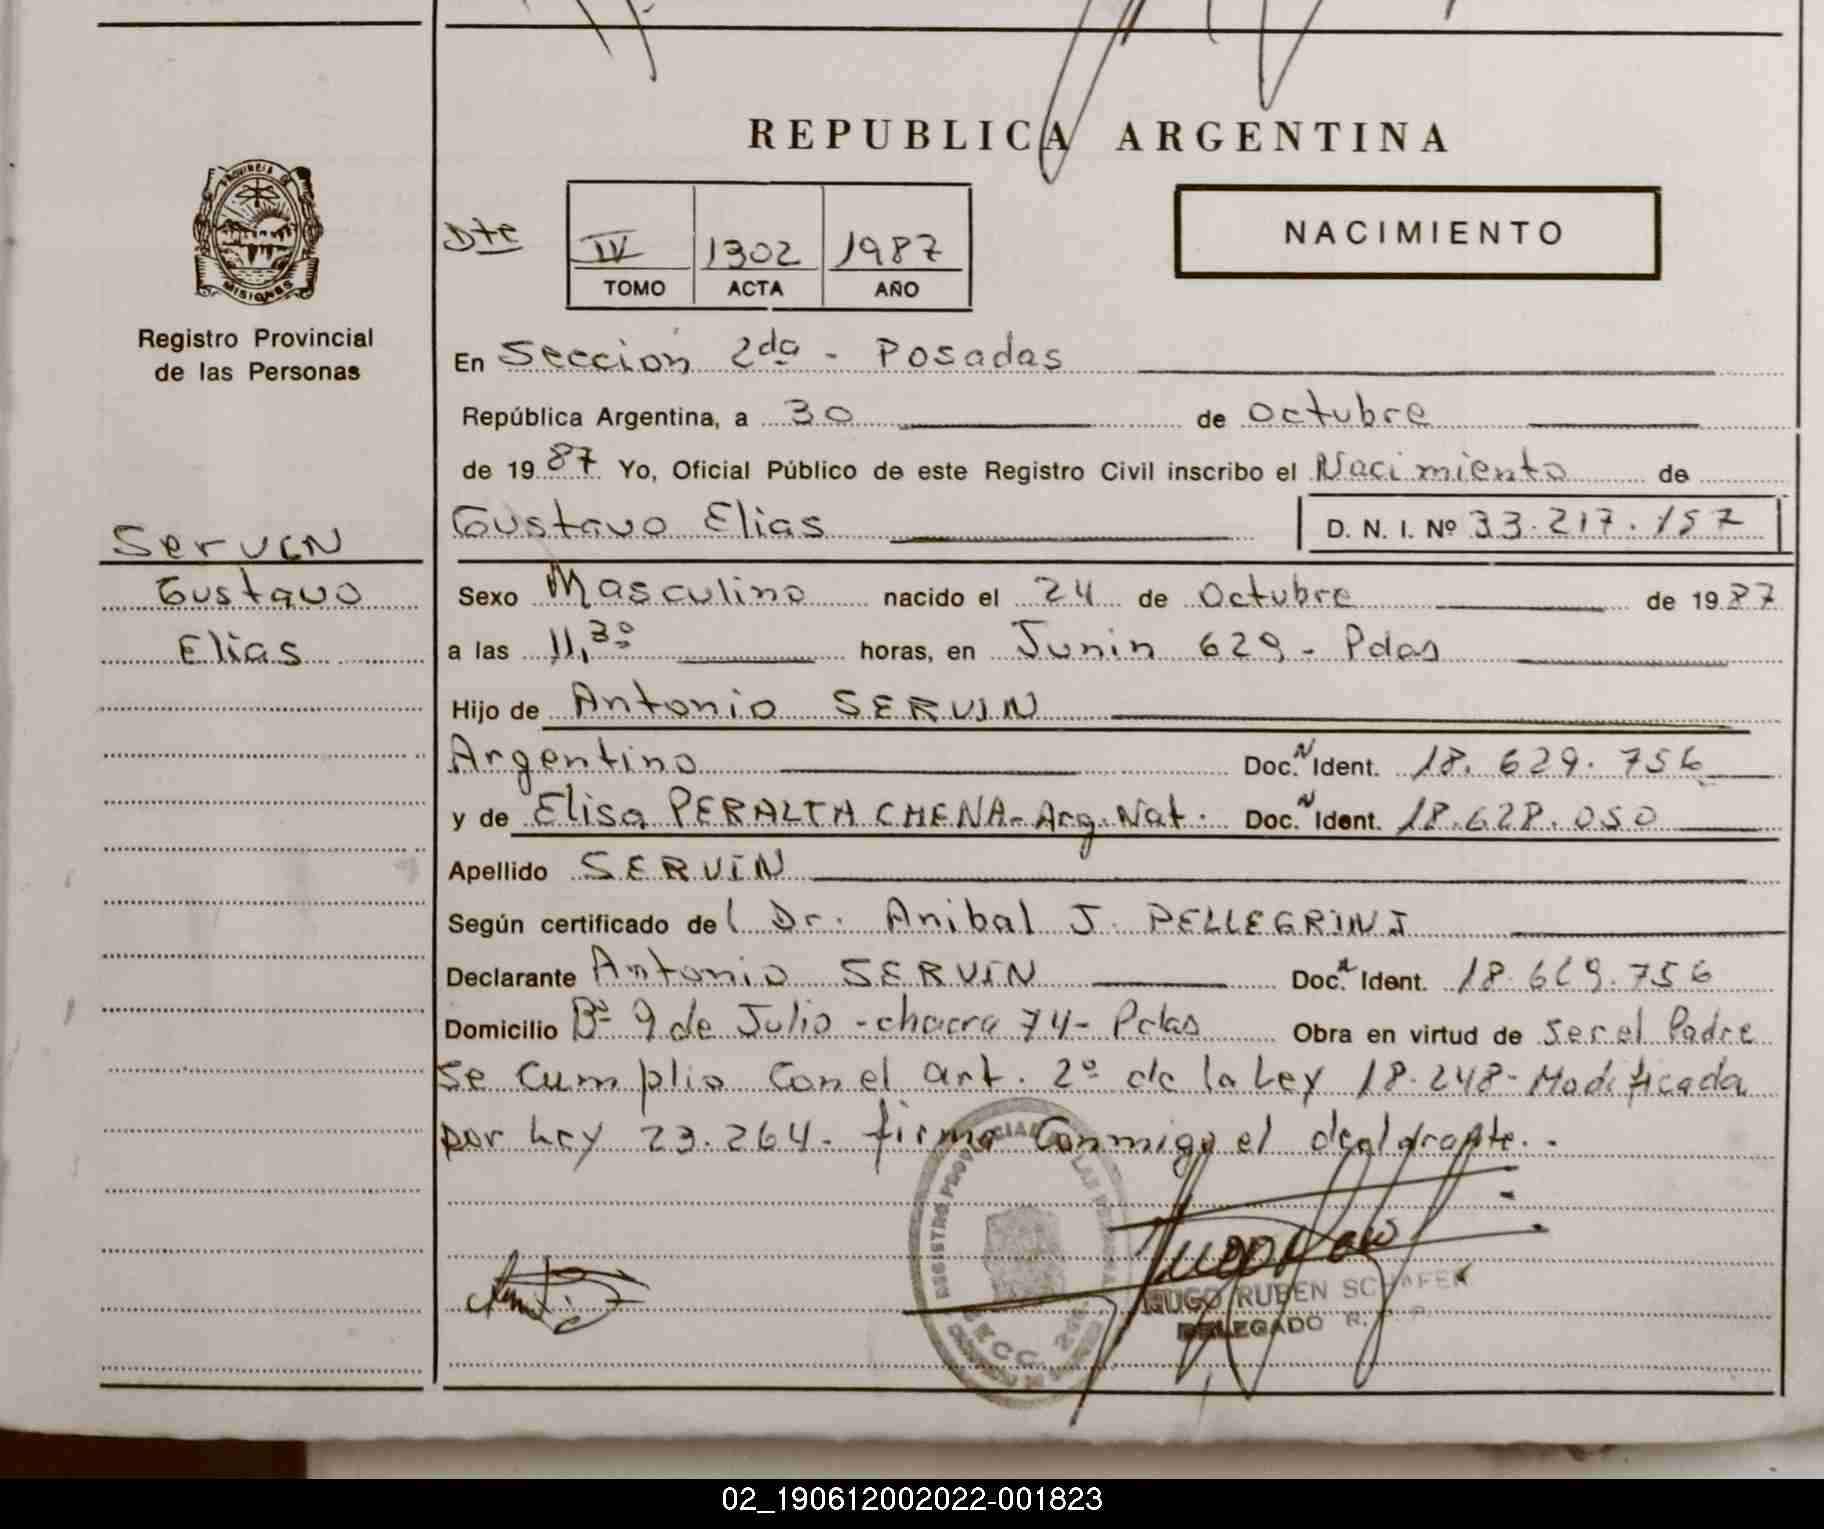 REPUBLICA ARGENTINA
PROVINCIA DE
MISIONES
Registro Provincial
de las Personas
Dte
IV 1302 1987
TOMO ACTA AÑO
NACIMIENTO
En Sección 2da - Posadas
República Argentina, a 30 de Octubre
de 1987 Yo, Oficial Público de este Registro Civil inscribo el Nacimiento de
Gustavo Elias D. N. I. Nº 33.217.157
Servin
Gustavo
Elias
Sexo Masculino nacido el 24 de Octubre de 1987
a las 11,30 horas, en Junin 629 - Pdas
Hijo de Antonio SERVIN
Argentino Doc. N Ident. 18.629.756
y de Elisa PERALTA CHENA - Arg. Nat. Doc. N Ident. 18.628.050
Apellido SERVIN
Según certificado del Dr. Anibal J. PELLEGRINI
Declarante Antonio SERVIN Doc. N Ident. 18.629.756
Domicilio Bº 9 de Julio - chacra 74 - Pdas Obra en virtud de Ser el Padre
Se Cumplio con el art. 2º de la Ley 18.248 - Modificada
por Ley 23.264. firma Conmigo el declarante. -
REGISTRO PROVINCIAL DE LAS PERSONAS
SECC. 2da.
HUGO RUBEN SCHAFER
DELEGADO R.
02_190612002022-001823